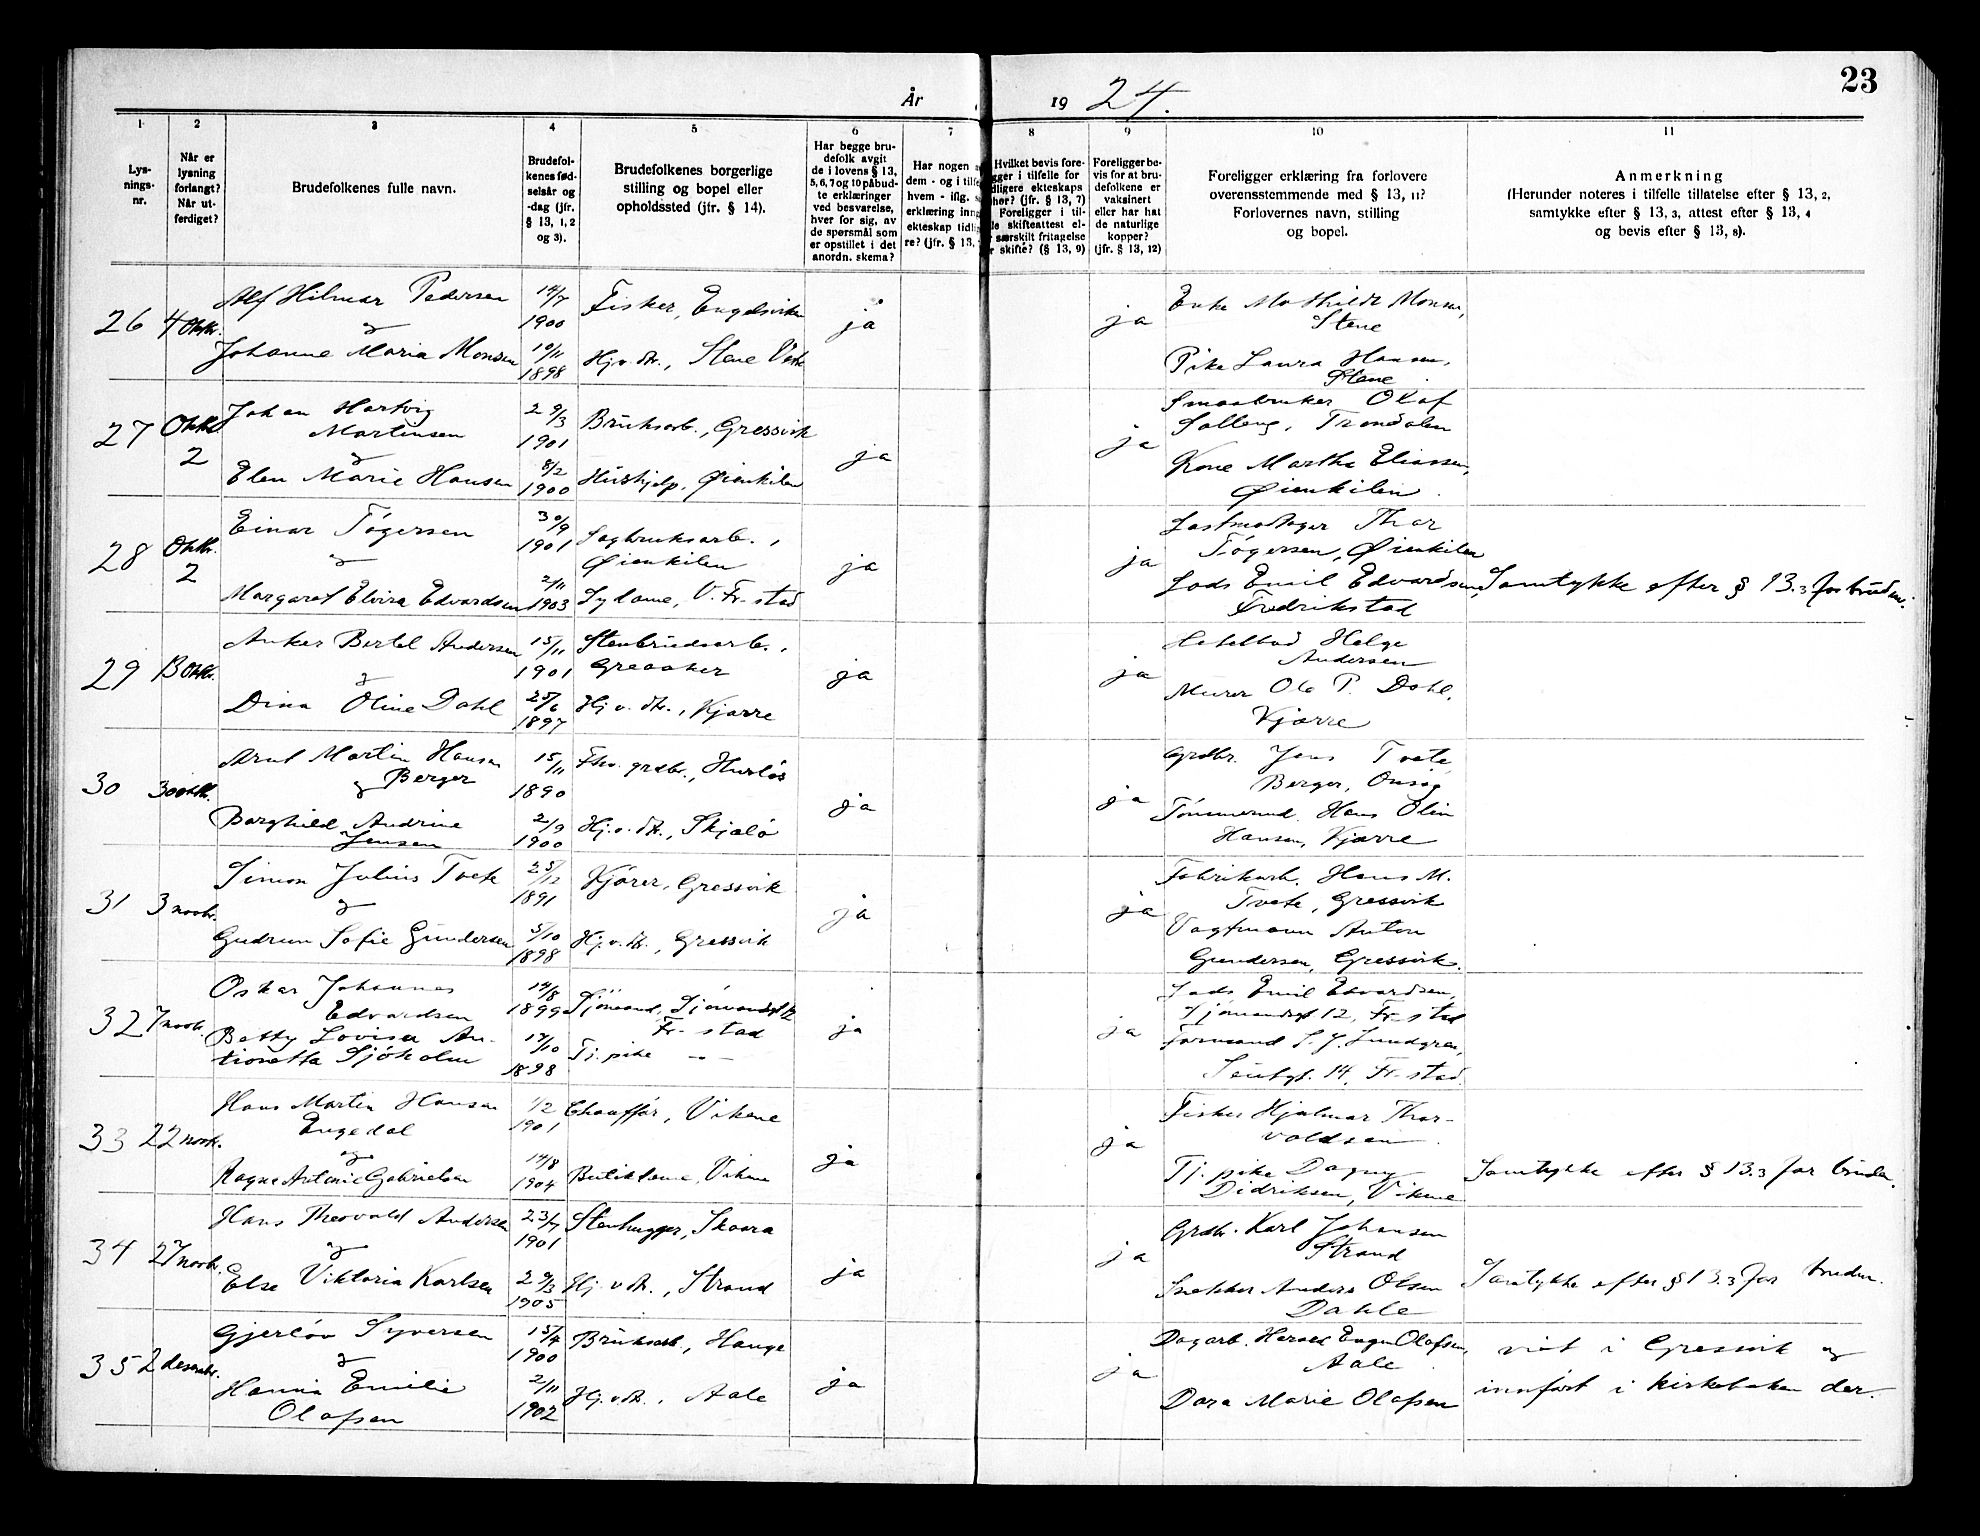 23
År 1924.
1 2 3 4 5 6 7 8 9 10 11
Lysnings-nr.
Når er lysning forlangt? Når utferdiget?
Brudefolkenes fulle navn.
Brudefolkenes fødselsår og -dag (jfr. § 13, 1, 2 og 3).
Brudefolkenes borgerlige stilling og bopel eller opholdssted (jfr. § 14).
Har begge brudefolk avgit de i lovens § 13, 5, 6, 7 og 10 påbudte erklæringer ved besvarelse, hver for sig, av de spørsmål som er opstillet i det anordn. skema?
Har nogen
dem - og i tilfe
hvem - iflg.
erklæring inng
ekteskap tidli
re? (jfr. § 13,
Hvilket bevis fore-
gger i tilfelle for
dligere ekteskaps
hør? (jfr. § 13, 7)
Foreligger i til-
le skifteattest el-
særskilt fritagelse
r skifte? (§ 13, 9)
Foreligger bevis for at brudefolkene er vaksinert eller har hat de naturlige kopper? (jfr. § 13, 12)
Foreligger erklæring fra forlovere overensstemmende med § 13, 11? Forlovernes navn, stilling og bopel.
Anmerkning
(Herunder noteres i tilfelle tillatelse efter § 13, 2,
samtykke efter § 13, 3, attest efter § 13, 4
og bevis efter § 13, 8).
26 4 Oktbr.
Alf Hilmar Pedersen 14/7 1900 Fisker, Engelsviken ja ja Enke Mathilde Monsen, Stene
og
Johanne Maria Monsen 10/11 1898 Hj.v. dtr., Stene Pike Laura Hansen, Stene
27 Oktbr 2
Johan Hartvig Martinsen 29/3 1901 Bruksarb., Gressvik ja ja Smaabruker Olaf Solleng, Trondalen
og
Elen Marie Hansen 8/2 1900 Hushjelp, Øienkilen Kone Martha Eliassen, Øienkilen.
28 Oktbr. 2
Einar Tøgersen 30/9 1901 Sagbruksarb., Øienkilen ja ja Lastmodtager Thor Tøgersen, Øienkilen
og
Margaret Elvira Edvardsen 2/11 1903 Sydame, V. Fr-stad Lods Emil Edvardsen, Fredrikstad Samtykke efter § 13.3 for bruden.
29 13 Oktbr.
Anker Bertel Andersen 15/11 1901 Stenbrudsarb., Greaaker ja ja Helge Andersen
og
Dina Oline Dahl 25/6 1897 Hj.v. dtr., Kjærre Murer Ole P. Dahl, Kjærre
30 30 oktbr.
Arnt Martin Hansen Berger 15/11 1890 Fhv. grdbr., ja ja Grdbr. Jens Tvete Berger, Onsøy
og
Borghild Andrine Jensen 2/9 1900 Hj.v. dtr., Skjælø Tømmermd. Hans Olin Hansen, Kjærre
31 3 novbr.
Simon Julius Tvete 25/12 1891 Kjører, Gressvik ja ja Fabrikarb. Hans M. Tvete, Gressvik
og
Gudrun Sofie Gundersen 5/10 1898 Hj.v. dtr., Gressvik Vagtmann Anton Gundersen, Gressvik.
32 7 novbr.
Oskar Johannes Edvardsen 14/8 1899 Sjømand, Sjømandsgt 12 Fr-stad ja ja Lods Emil Edvardsen, Sjømandsgt 12, Fr-stad
Betty Lovisa Antionetta Sjöholm 17/10 1898 Tj. pike -- Formand S. J. Lundgren, 14, Fr-stad.
33 22 novbr.
Hans Martin Hansen Engedal 1/2 1901 Chauffør, Vikene ja ja Fisker Hjalmar Thorvaldsen.
og
Ragna Antonie Gabrielsen 14/8 1904 Butikdame, Vikene Tj. pike Dagny Didriksen, Vikene Samtykke efter § 13.3 for bruden.
34 27 novbr.
Hans Theovald Andersen 23/7 1901 Stenhugger, Skaara ja ja Grdbr. Karl Johansen Strand
og
Else Viktoria Karlsen 29/3 1905 Hj. v dtr., Strand Snekker Anders Olsen Dahle Samtykke efter § 13.3 for bruden.
35 2 desembr.
Gjerløv Syversen 15/4 1900 Bruksarb., Hauge ja ja Dagarb. Harald Eugen Olafsen, Aale
og
Hanna Emilie Olafsen 2/11 1902 Hj.v. dtr., Aale Dora Marie Olafsen
viet i Gressvik og
innført i kirkeboken der.